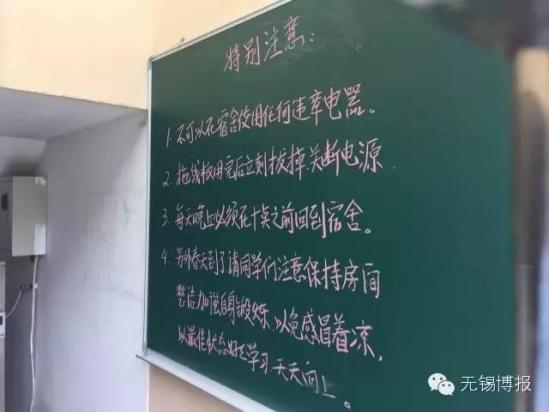 特别注意：
1. 不可以在宿舍使用任何违章电器。
2. 拖线板用完后立刻拔掉关断电源
3. 每天晚上必须在十点之前回到宿舍。
4. 另外春天到了请同学们注意保持房间
整洁加强自身锻炼，以免感冒着凉，
以最佳状态好好学习天天向上。
无锡博报